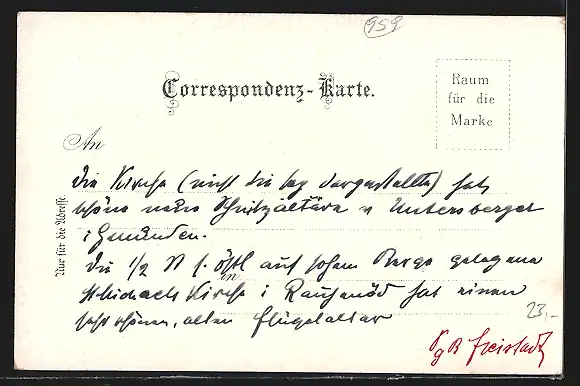 959
Correspondenz-Karte.
Raum
für die
Marke
An
Nur für die Adresse.
die Kirche (nicht die dargestellte) hat
schöne neue Schnitzaltäre v Untersberger
i Gmunden.
Die 1/2 östl auf hohem Berge gelegene
St Michaels Kirche i Rauhenöd hat einen
sehr schönen, alten Flügelaltar
23,-
PgB Freistadt